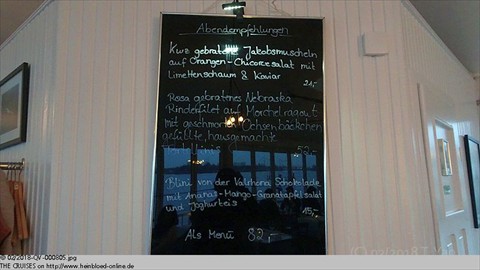 Abendempfehlungen
Kurz gebratene Jakobsmuscheln
auf Orangen-Chicoreesalat mit
Limettenschaum & Kaviar
Rosa gebratenes Nebraska
Rinderfilet auf Morchelragout
mit geschmorten Ochsenbäckchen
gefüllte, hausgemachte
52,-
Blini von der Valrhona Schokolade
mit Ananas-Mango-Granatapfelsalat
und Joghurteis
15,-
Als Menü 82,-
© 02/2018-QV-000805.jpg
THE CRUISES on http://www.heinbloed-online.de